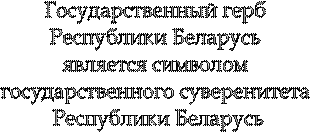 Государственный герб
Республики Беларусь
является символом
государственного суверенитета
Республики Беларусь